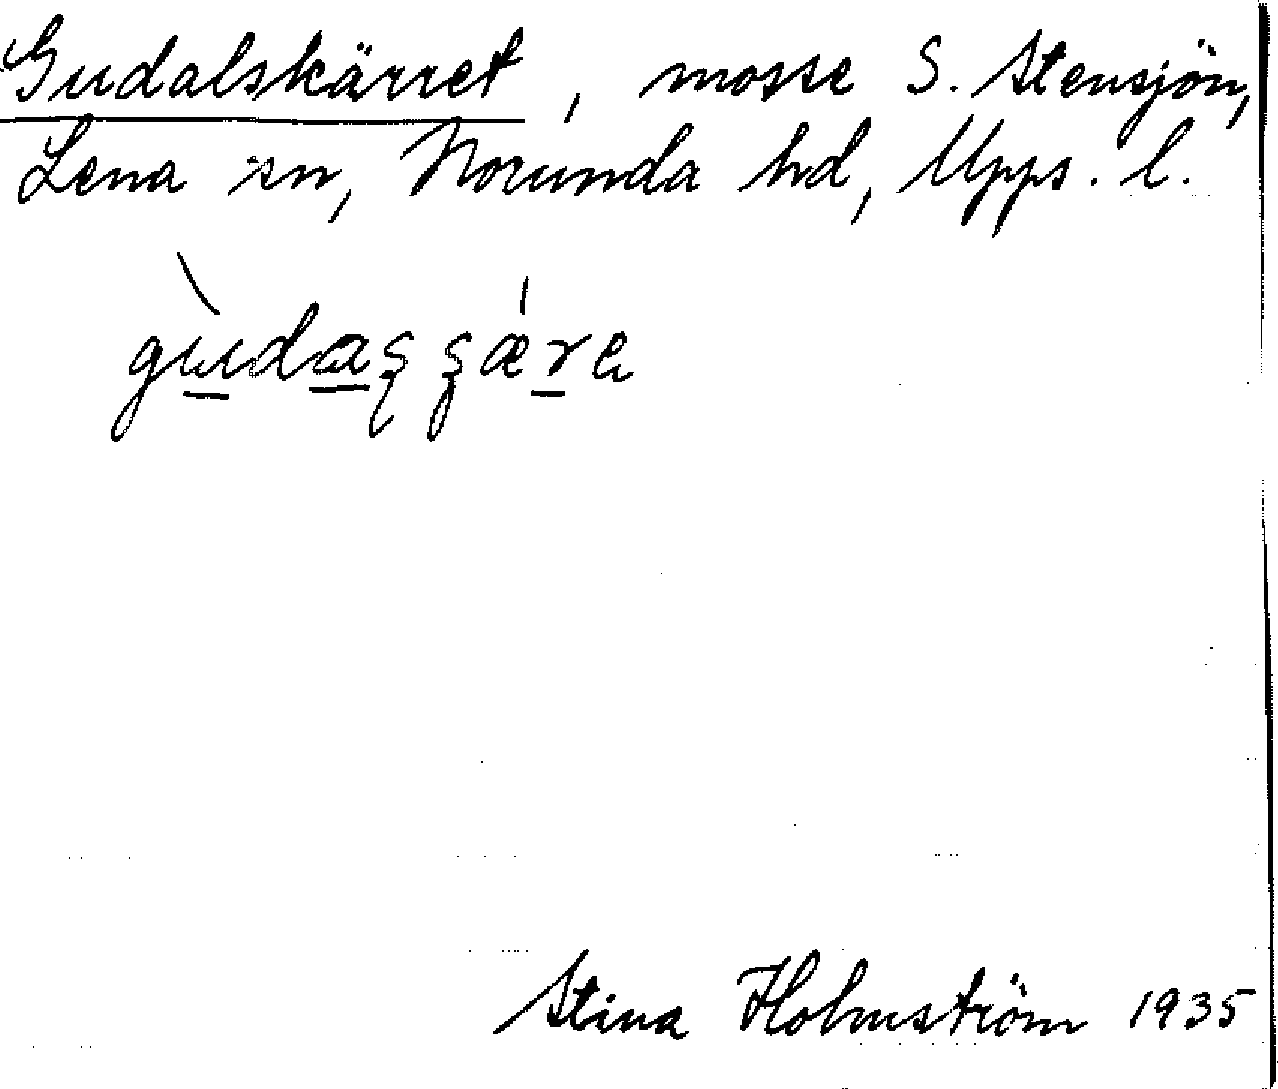 Gudalskärret, mosse S. Stensjön,
Lena sn, Norunda hd, Upps. l.
Stina Holmström 1935